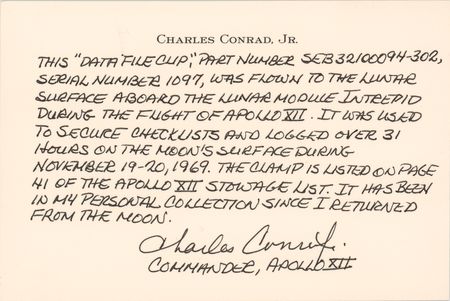 CHARLES CONRAD, JR.
THIS "DATA FILE CLIP," PART NUMBER SEB32100094-302,
SERIAL NUMBER 1097, WAS FLOWN TO THE LUNAR
SURFACE ABOARD THE LUNAR MODULE INTREPID
DURING THE FLIGHT OF APOLLO XII. IT WAS USED
TO SECURE CHECKLISTS AND LOGGED OVER 31
HOURS ON THE MOON'S SURFACE DURING
NOVEMBER 19-20, 1969. THE CLAMP IS LISTED ON PAGE
41 OF THE APOLLO XII STOWAGE LIST. IT HAS BEEN
IN MY PERSONAL COLLECTION SINCE I RETURNED
FROM THE MOON.
Charles Conrad Jr.
COMMANDER, APOLLO XII